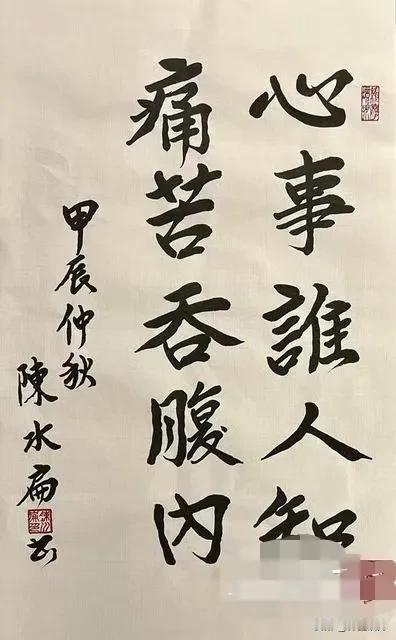 心事誰人知
痛苦吞腹內
甲辰仲秋
陳水扁書